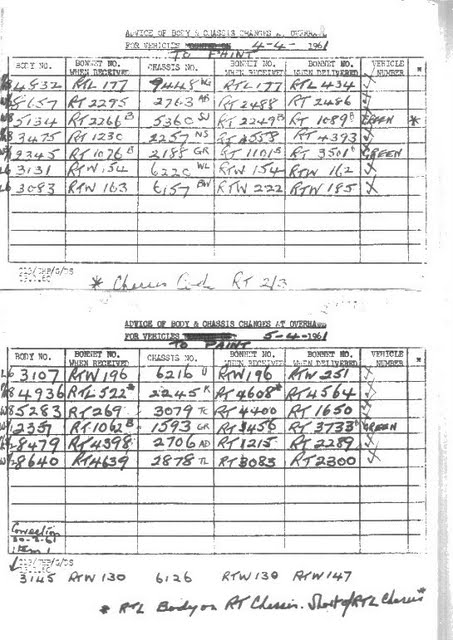 ADVICE OF BODY & CHASSIS CHANGES AT OVERHAUL
FOR VEHICLES 4-4-1961
TO PAINT
BODY NO. BONNET NO. WHEN RECEIVED CHASSIS NO. BONNET NO. WHEN RECEIVED BONNET NO. WHEN DELIVERED VEHICLE NUMBER *
4832 RTL 177 RTL 177 RTL 434
8657 RT 2275 2763 AB RT 2488 RT 2486
5134 RT 2266 B 5360 SJ RT 2249 B RT 1089 B GREEN *
3475 RT 1230 2257 NS RT 4558 RT 4393
2345 RT 1076 B 2188 GR RT 1101 B RT 3501 GREEN
3131 RTW 154 6220 WL RTW 154 RTW 162
3083 RTW 163 6157 BW RTW 222 RTW 185
* Chassis RT 2/3
ADVICE OF BODY & CHASSIS CHANGES AT OVERHAUL
FOR VEHICLES 5-4-1961
TO PAINT
BODY NO. BONNET NO. WHEN RECEIVED CHASSIS NO. BONNET NO. WHEN RECEIVED BONNET NO. WHEN DELIVERED VEHICLE NUMBER *
3107 RTW 196 6216 U RTW 196 RTW 251
4936 RTL 522 * 2245 K RT 4608 * RT 4564
5283 RT 269 3079 TC RT 4400 RT 1650
2351 RT 1062 B 1593 GR RT 3456 RT 3733 GREEN
8479 RT 4398 2706 AD RT 1215 RT 2289
8640 RT 4639 2878 TL RT 3083 RT 2300
Correction
30-3-61
item 1
3145 RTW 130 6126 RTW 130 RTW 147
* RTL Body on RT Chassis. Short of RTL Chassis *